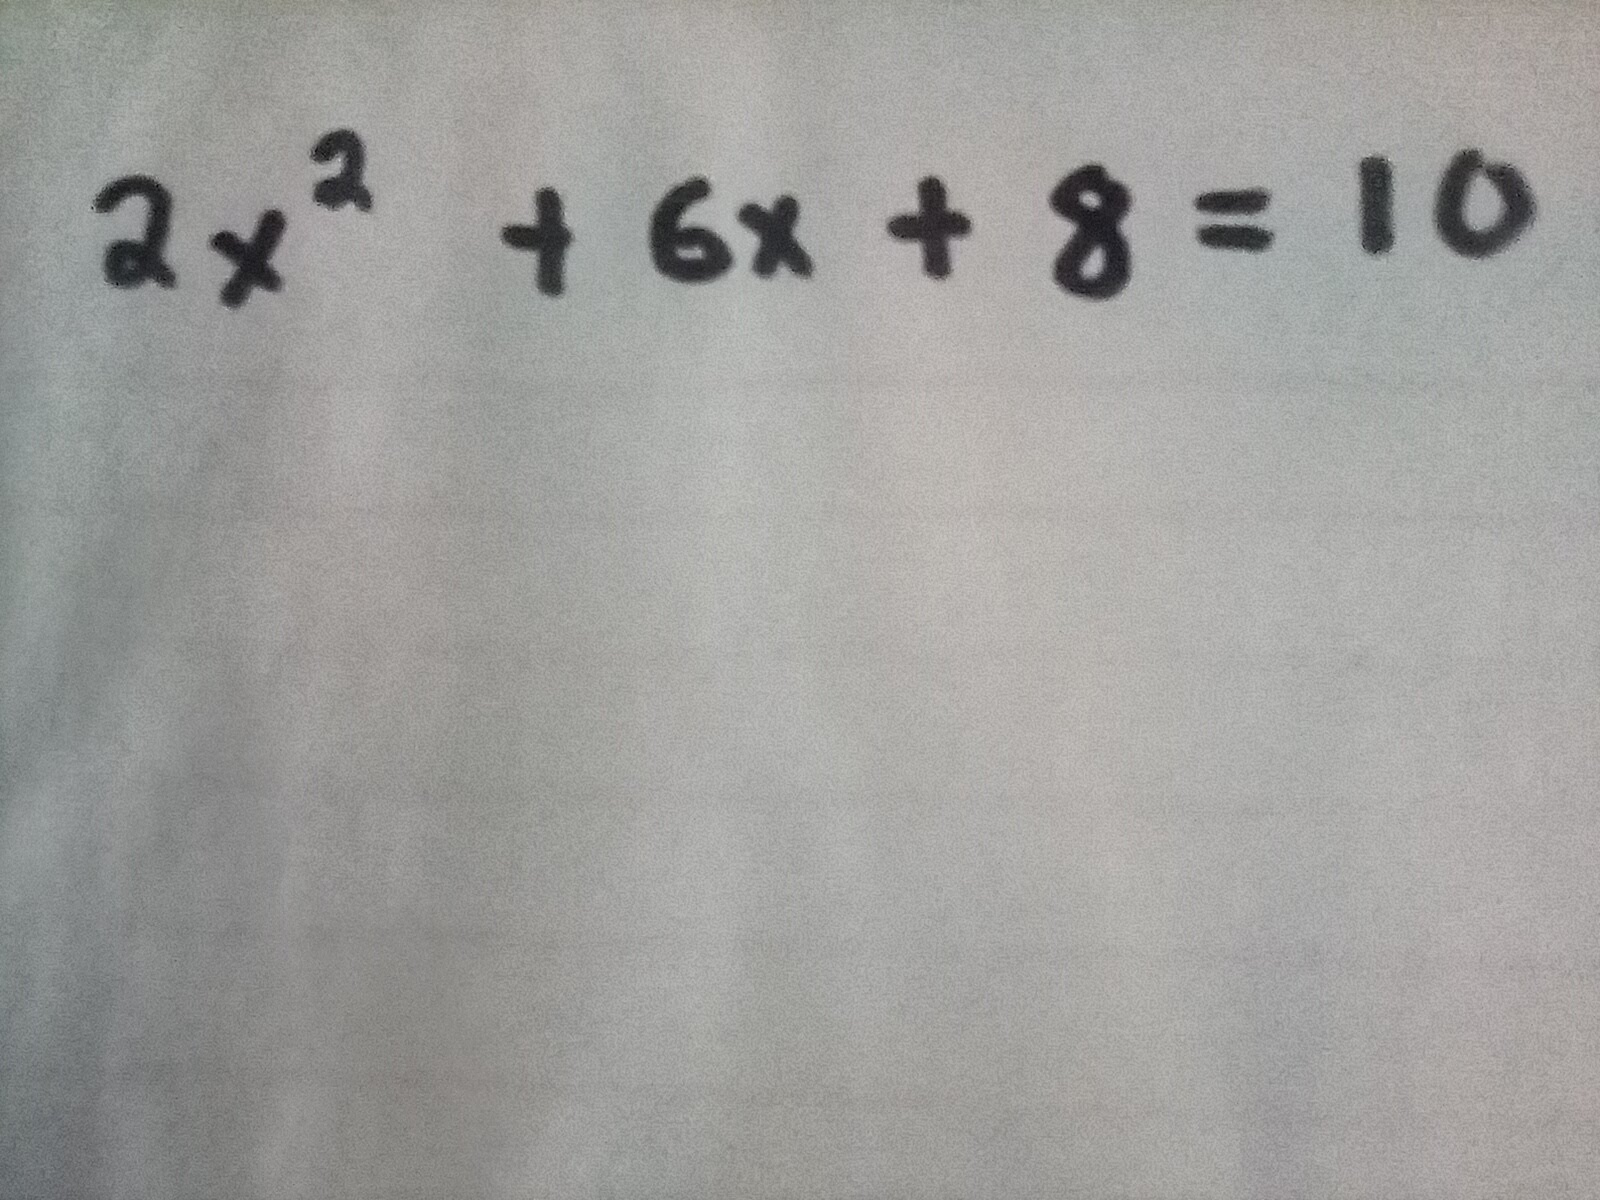 2x² + 6x + 8 = 10